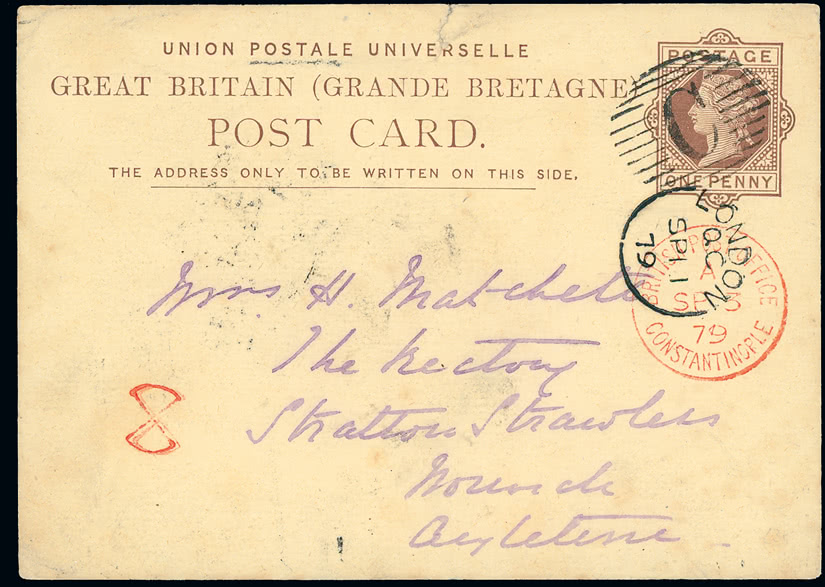 UNION POSTALE UNIVERSELLE
GREAT BRITAIN (GRANDE BRETAGNE)
POST CARD.
THE ADDRESS ONLY TO BE WRITTEN ON THIS SIDE.
POSTAGE
ONE PENNY
LONDON
SP 11
79
BRITISH POST OFFICE
A
SP 3
79
CONSTANTINOPLE
Mrs. H. Matchett
The Rectory
Stratton Strawless
Norwich
Angleterre